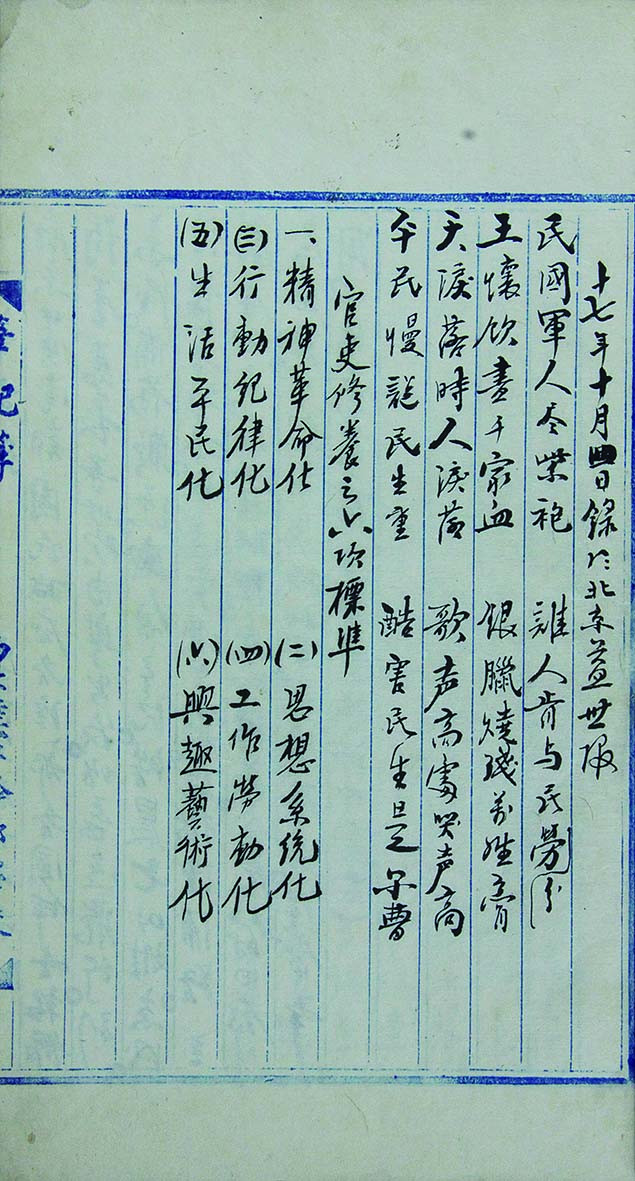 十七年十月四日錄於北京益世报
民國軍人尽紫袍　誰人肯与民勞分
王懷飲盡千家血　銀臘燒残万姓膏
天淚落時人淚落　歌声高處哭声高
平民慢說民生重　酷害民生是尔曹
官吏修養之六項標準
一、精神革命化　(二)思想系統化
(三)行動紀律化　(四)工作勞動化
(五)生活平民化　(六)興趣藝術化
筆記簿